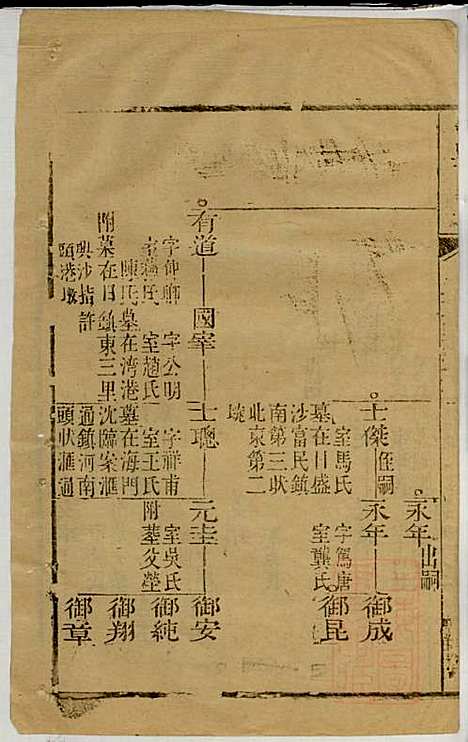 永年出嗣
士傑侄嗣
室馬氏
墓在日盛
沙富民鎮
南第三狀
北京第二
永年
字篤唐
室龔氏
御成
御昆
有道
字仰
室
陳氏墓在湾港
附墓在日鎮東三里
與沙指許
頭港墩
國宰
字公明
室趙氏
士璁
字祥甫
室王氏
墓在海門
沈歸案滙
通鎮河南
頭狀滙通
元圭
室吳氏
附墓父塋
御安
御純
御翔
御章